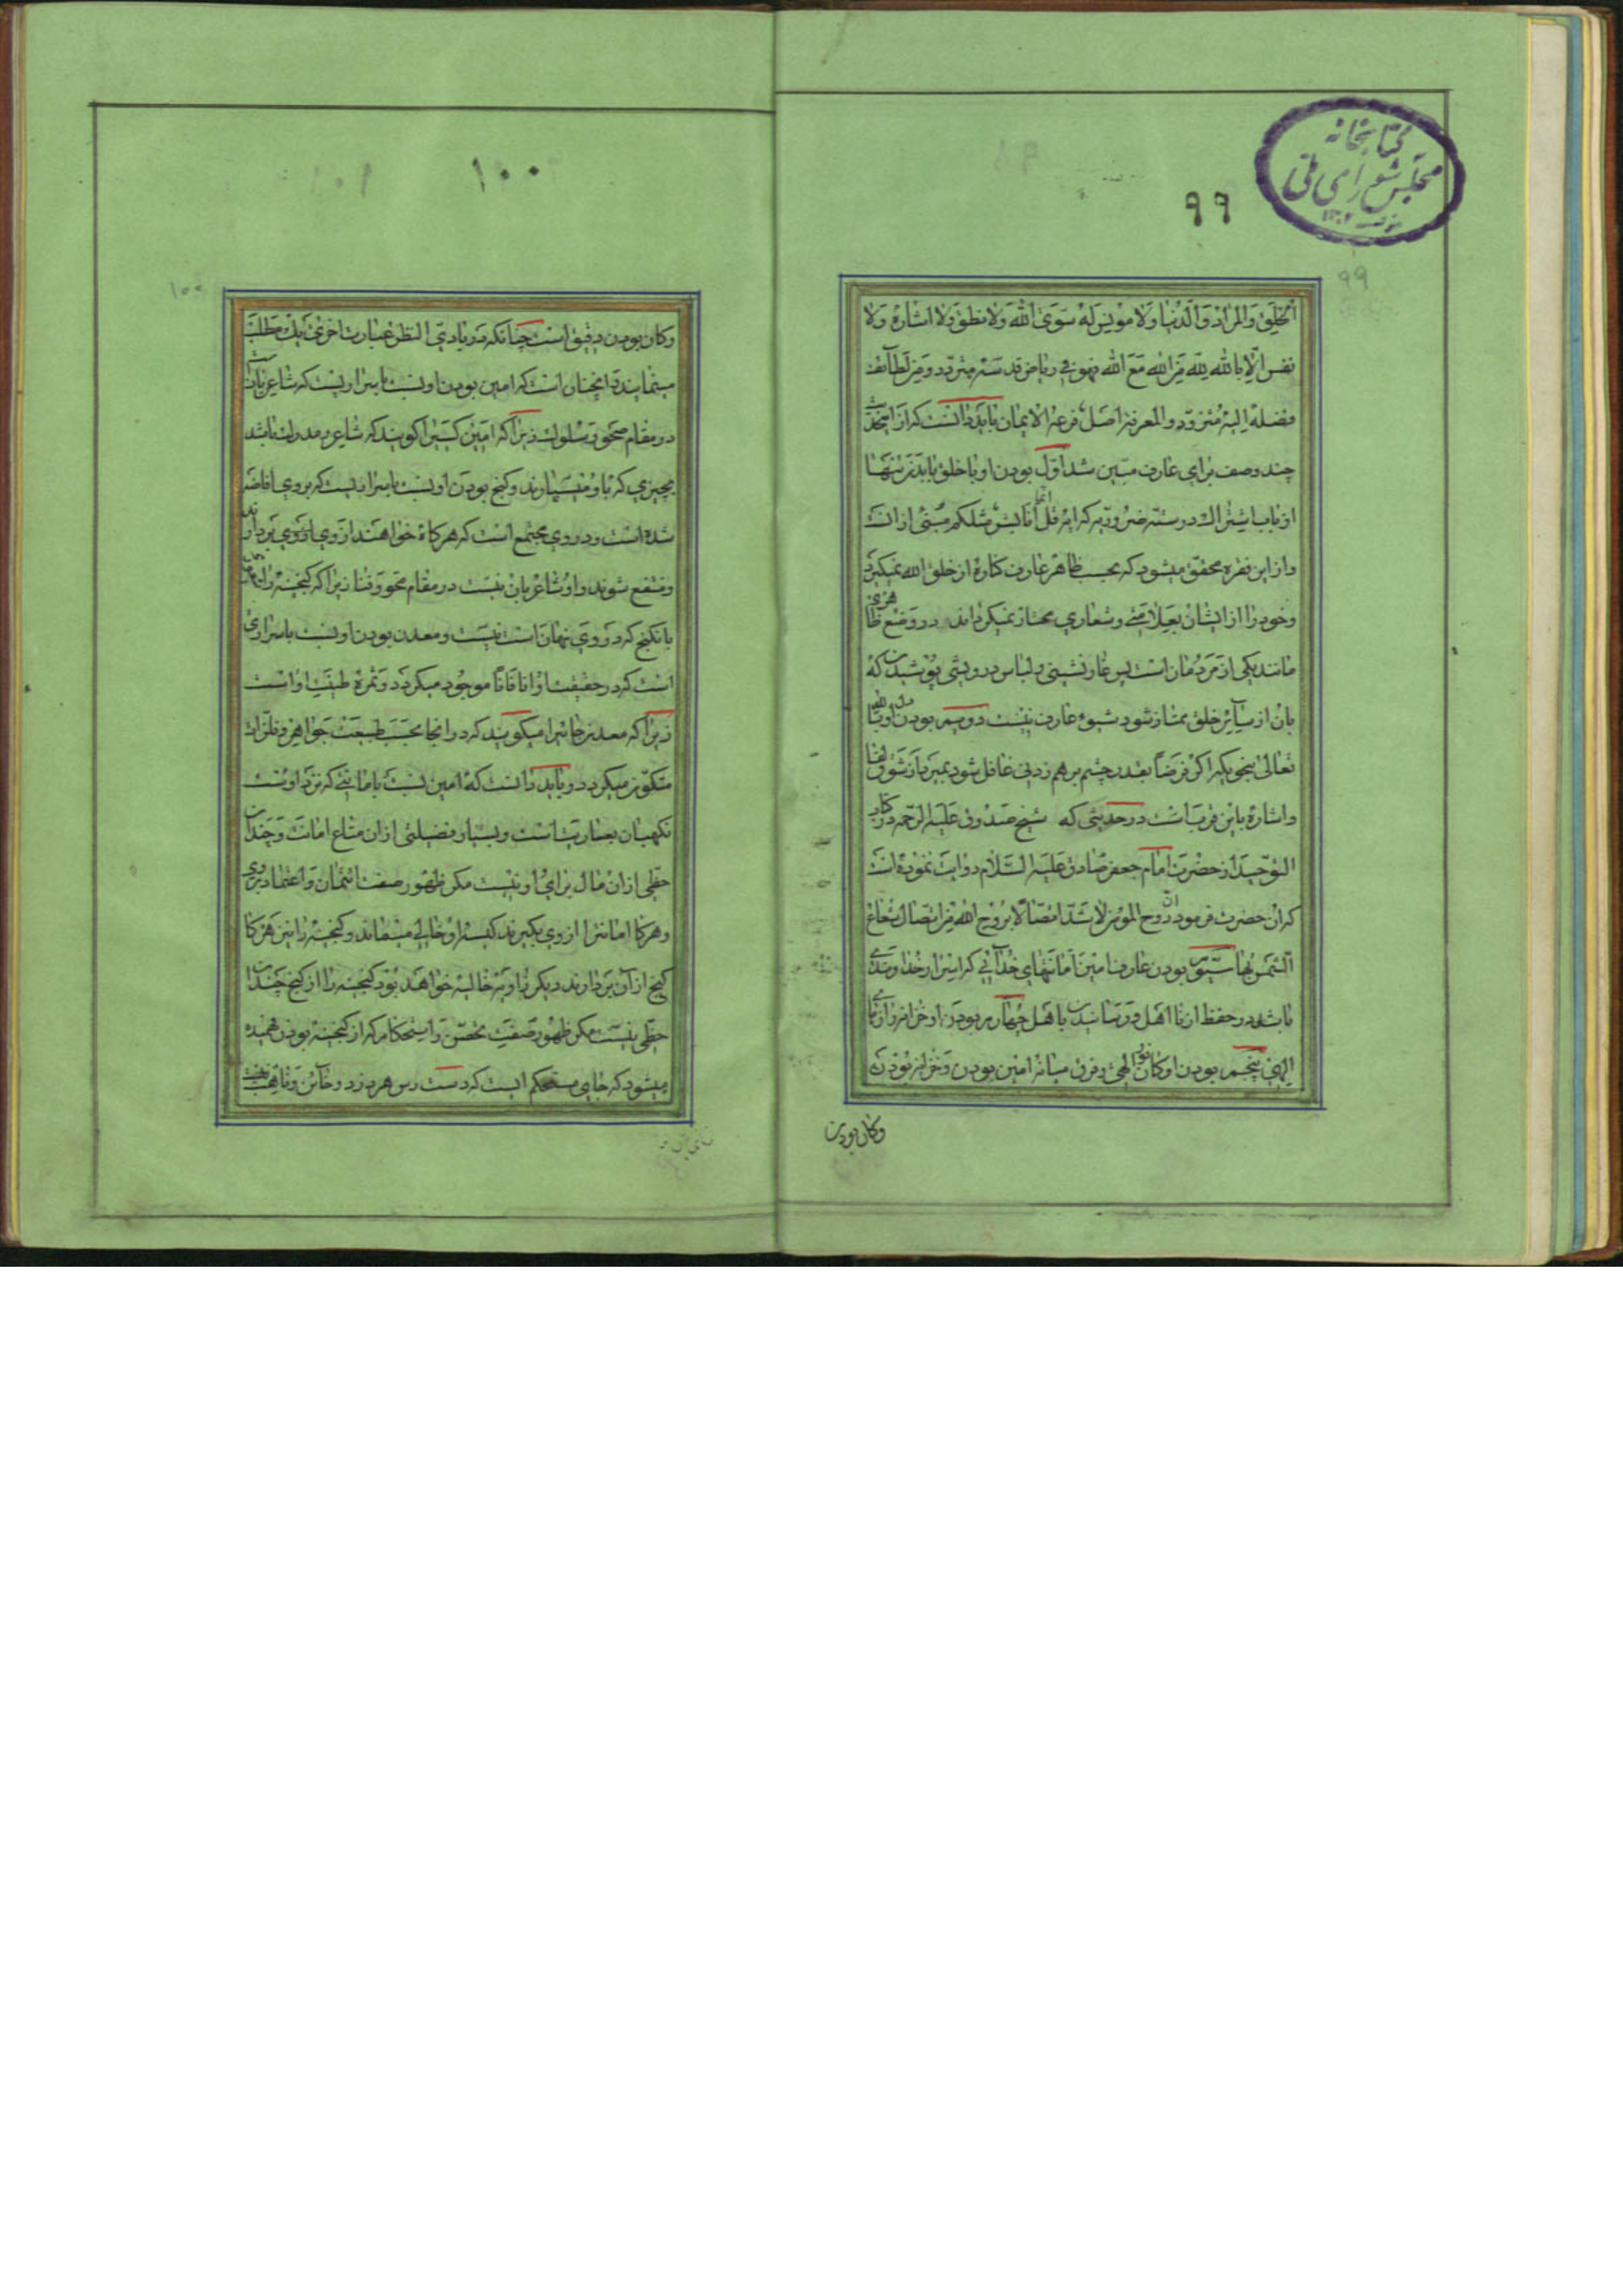 کتابخانه
مجلس شورای ملی
۹۹
۹۹
الخلق والمراد والدنیا ولا مونس له سوی الله ولا نطق ولا اشارة ولا
نفس الا بالله لله من الله مع الله فهو فی ریاض قدسه متردد ومن لطائف
فضله الیه متزود والمعرفة اصل فرعه الایمان باید دانست که از این حدیث
چند وصف برای عارف مبین شد اول بودن او با خلق بابدن تنها
از باب اشتراک در بشریه ضروریه که ایه قل انما انا بشر مثلکم مبنی از انست
و از این فقره محقق میشود که بحسب ظاهر عارف کناره از خلق الله نمیگیرد
و خود را از ایشان بعلامتی و شعاری ممتاز نمیگرداند در وضع ظاهری
مانند یکی از مردمان است پس غارنشینی و لباس درویشی پوشیدن که
بان از سایر خلق ممتاز شود شیوه عارف نیست دویم بودن دل او با الله
تعالی بنحویکه اگر فرضا بقدر چشم برهم زدنی غافل شود بمیرد از شوق لقا
و اشاره باین قربست در حدیثی که شیخ صدوق علیه الرحمه در کتاب
التوحید از حضرت امام جعفر صادق علیه السلام روایت نموده است
که ان حضرت فرمود ان روح المومن لاشد اتصالا بروح الله من اتصال شعاع
الشمس بها سیوم بودن عارف امین امانتهای خدائی که اسرار خداوندی
باشد در حفظ از نااهل و رسانیدن باهل چهارم بودن او خزانه رازهای
الهی پنجم بودن او کان نور الهی و فرق میانه امین بودن و خزانه بودن
وکان بودن
۱۰۰
۱۰۰
وکان بودن دقیق است چنانکه در بادی النظر عبارت اخری یک مطلب
مینماید و انچنان است که امین بودن او نسبت باسراریست که شاعر بانست
در مقام صحو و سلوک زیرا که امین کسیرا گویند که شاعر و مدرک باشد
بچیزی که باو میسپارند و گنج بودن او نسبت باسراریست که بروی افاضه
شده است و در وی مجتمع است که هرگاه خواهند از وی از وی بردارند
و منتفع شوند و او شاعر بان نیست در مقام محو و فنا زیرا که گنجینه را
با نکنج که در وی نهان است نیست و معدن بودن او نسبت باسراری
است که در حقیقت او انا فانا موجود میگردد و ثمره طینت او است
زیرا که معدن جائیرا میگویند که در انجا بحسب طبیعت جواهر و فلزات
متکون میگردد و باید دانست که امین نسبت بامانتی که نزد اوست
نگهبان بعاریت است و بسیار فضیلتی از ان متاع امانت و چندان
حظی از ان مال برای او نیست مگر ظهور صفت ائتمان و اعتماد بروی
و هرگاه امانترا از وی بگیرند کیسه او خالی میماند و گنجینه را نیز هرگاه
گنج از ان بردارند دیگر زاویه خالیه خواهد بود گنجینه را از گنج چندان
حظی نیست مگر ظهور صفت تحصن و استحکام که از گنجینه بودن فهمیده
میشود که جای مستحکم است که دست رس هر دزد و خائن و ناهب نیست